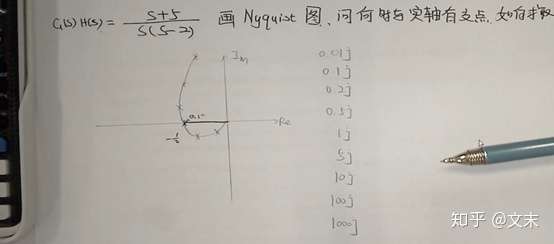 G(s)H(s) = \frac{s+5}{s(s-2)} 画 Nyquist 图、问何时与实轴有支点,如何求取
Im
0.01j
0.1j
0.2j
0.5j
Re
1j
5j
10j
100j
1000j
知乎 @文末